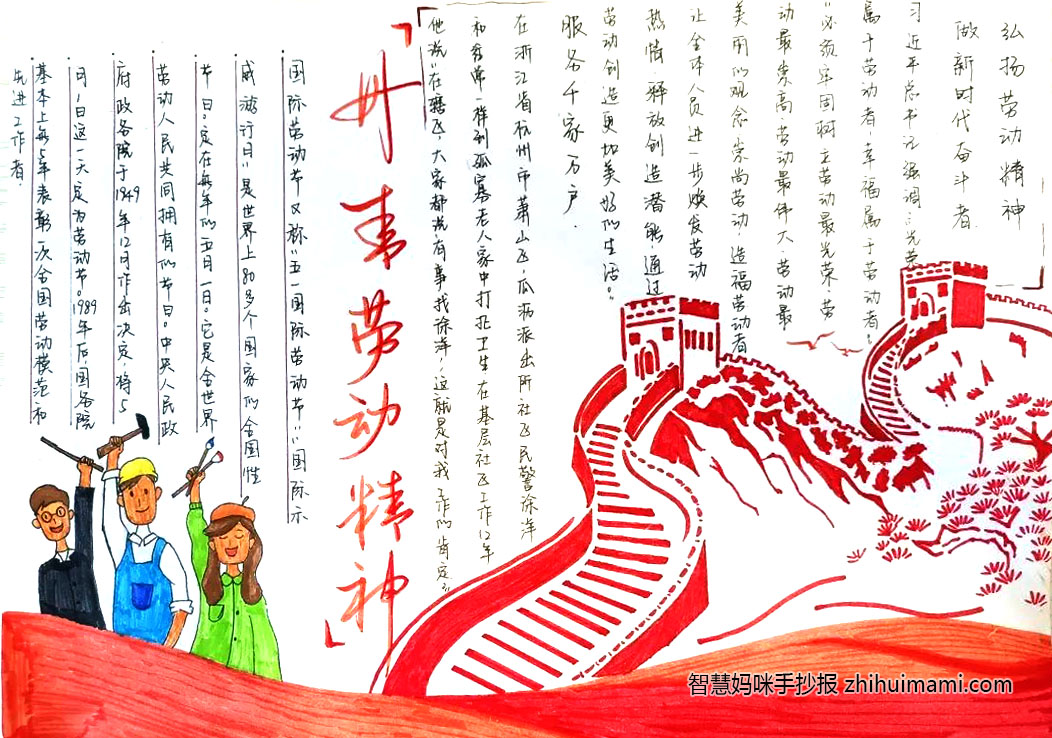 弘扬劳动精神
做新时代奋斗者
习近平总书记强调：光荣
属于劳动者，幸福属于劳动者。
"必须牢固树立劳动最光荣、劳
动最崇高、劳动最伟大、劳动最
美丽的观念，崇尚劳动、造福劳动者
让全体人员进一步焕发劳动
热情、释放创造潜能，通过
劳动创造更加美好的生活。
服务千家万户.
在浙江省杭州市萧山区，瓜沥派出所社区民警徐洋
和往常一样到孤寡老人家中打扫卫生在基层社区工作12年
他说"在辖区大家都说有事找徐洋，这就是对我工作的肯定"
「什事劳动精神」
国际劳动节又称"五一国际劳动节""国际示
威游行日"是世界上80多个国家的全国性
节日。定在每年的五月一日。它是全世界
劳动人民共同拥有的节日。中央人民政
府政务院于1949年12月作出决定，将5
月1日这一天定为劳动节。1989年后，国务院
基本上每5年表彰一次全国劳动模范和
先进工作者.
智慧妈咪手抄报 zhihuimami.com